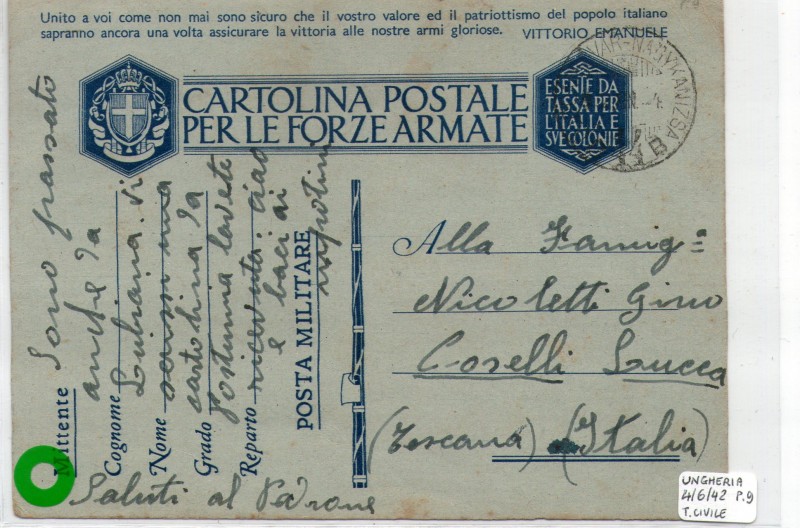 Unito a voi come non mai sono sicuro che il vostro valore ed il patriottismo del popolo italiano
sapranno ancora una volta assicurare la vittoria alle nostre armi gloriose. VITTORIO EMANUELE
CARTOLINA POSTALE
PER LE FORZE ARMATE
ESENTE DA
TASSA PER
L'ITALIA E
SVE COLONIE
NAGYKANIZSA
B
Mittente
Cognome
Nome
Grado
Reparto
POSTA MILITARE
Sono passato
anche da
Lubiana. vi
una
cartolina da
Postumia lavete
ricevuta. ciao
e baci ai
nipotini
Saluti al Padrone
Alla Famig=
Nicoletti Gino
Coselli Lucca
(Toscana) (Italia)
UNGHERIA
4/6/42 P.9
T. CIVILE